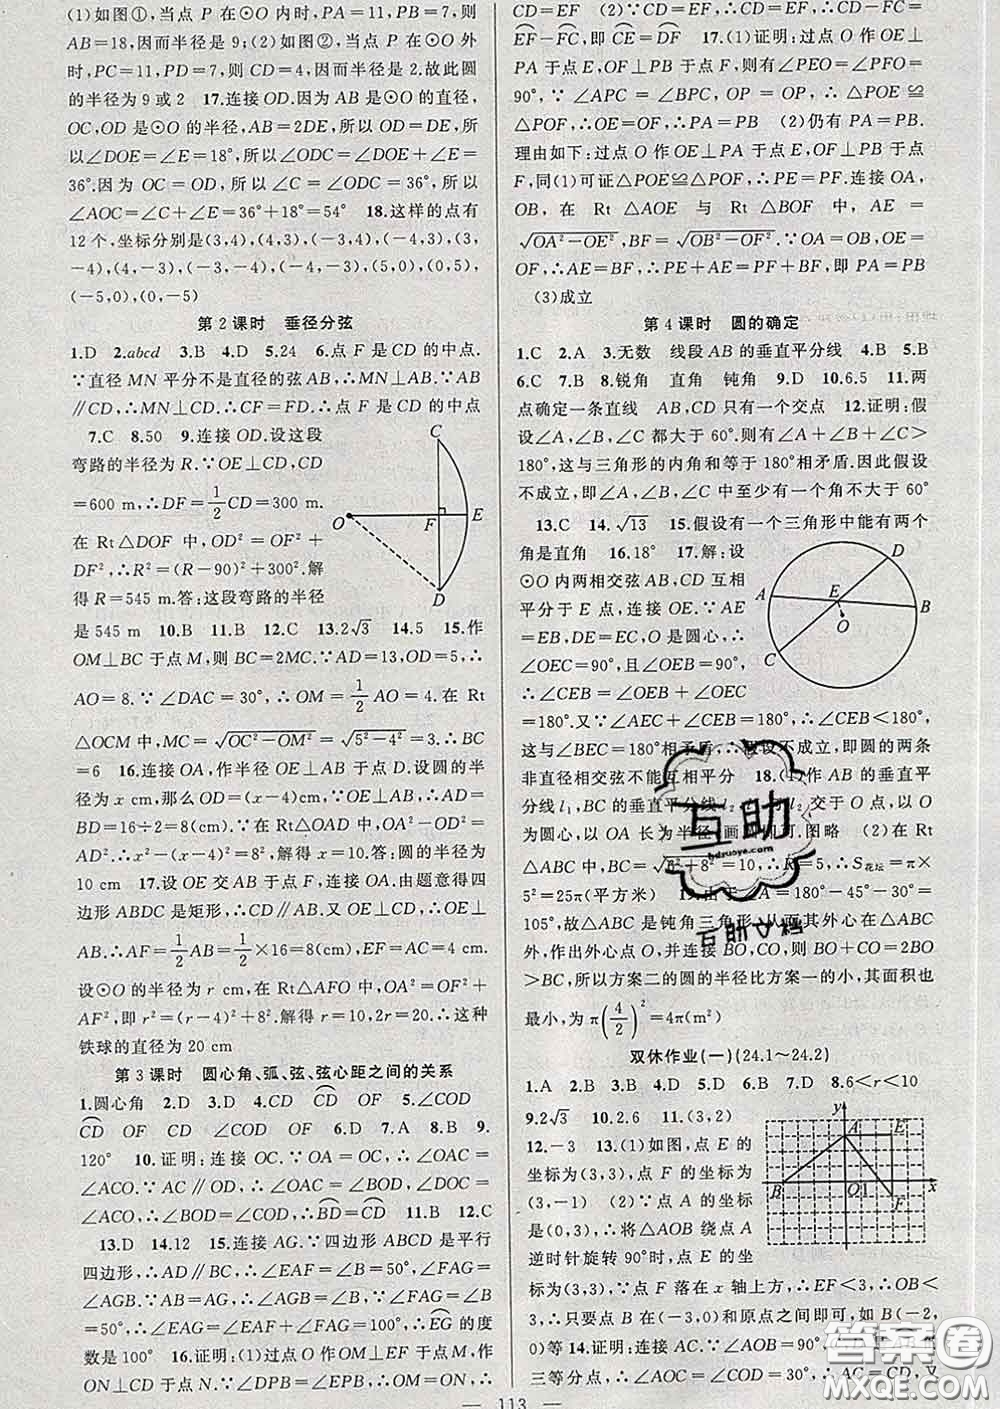 (1)如图①,当点 P 在⊙O 内时,PA=11,PB=7,则
AB=18,因而半径是 9;(2)如图②,当点 P 在⊙O 外
时,PC=11,PD=7,则 CD=4,因而半径是 2.故此圆
的半径为 9 或 2 17.连接 OD.因为 AB 是⊙O 的直径,
OC,OD 是⊙O 的半径,AB=2DE,所以 OD=DE,所
以∠DOE=∠E=18°,所以∠ODC=∠DOE+∠E=
36°.因为 OC=OD,所以∠C=∠ODC=36°,所以
∠AOC=∠C+∠E=36°+18°=54° 18.这样的点有
12 个,坐标分别是(3,4),(4,3),(-3,4),(-4,3),(3,
-4),(4,-3),(-3,-4),(-4,-3),(5,0),(0,5),
(-5,0),(0,-5)
第 2 课时 垂径分弦
1.D 2.abcd 3.B 4.D 5.24 6.点 F 是 CD 的中点.
∵直径 MN 平分不是直径的弦 AB,∴MN⊥AB.∵AB
∥CD,∴MN⊥CD.∴CF=FD.∴点 F 是 CD 的中点
7.C 8.50 9.连接 OD.设这段
弯路的半径为 R.∵OE⊥CD,CD
=600 m,∴DF=1/2CD=300 m.
在 Rt△DOF 中,OD²=OF²+
DF²,∴R²=(R-90)²+300².解
得 R=545 m.答:这段弯路的半径
C
O F E
D
是 545 m 10.B 11.B 12.C 13.2√3 14.5 15.作
OM⊥BC 于点 M,则 BC=2MC.∵AD=13,OD=5,∴
AO=8.∵∠DAC=30°,∴OM=1/2AO=4.在 Rt
△OCM 中,MC=√(OC²-OM²)=√(5²-4²)=3.∴BC
=6 16.连接 OA,作半径 OE⊥AB 于点 D.设圆的半
径为 x cm,那么 OD=(x-4)cm.∵OE⊥AB,∴AD=
BD=16÷2=8(cm).在 Rt△OAD 中,OA²-OD²=
AD².∴x²-(x-4)²=8²,解得 x=10.答:圆的半径为
10 cm 17.设 OE 交 AB 于点 F,连接 OA.由题意得四
边形 ABDC 是矩形,∴CD∥AB.又 OE⊥CD,∴OE⊥
AB.∴AF=1/2AB=1/2×16=8(cm),EF=AC=4 cm.
设⊙O 的半径为 r cm,在 Rt△AFO 中,OA²=OF²+
AF²,即 r²=(r-4)²+8².解得 r=10,2r=20.∴这种
铁球的直径为 20 cm
第 3 课时 圆心角、弧、弦、弦心距之间的关系
1.圆心角 2.D 3.D 4.CD CD OF 5.∠COD
CD OF CD ∠COD OF 6.D 7.A 8.B 9.
120° 10.证明:连接 OC.∵OA=OC,∴∠OAC=
∠OCA.∵AC∥OD,∴∠OAC=∠BOD,∠DOC=
∠OCA,∴∠BOD=∠COD,∴BD=CD 11.B 12.C
13.D 14.12 15.连接 AG.∵四边形 ABCD 是平行
四边形,∴AD∥BC,∴∠EAF=∠B=50°,∠FAG=
∠AGB.∵AB=AG,∴∠AGB=∠B,∴∠FAG=∠B
=50°,∴∠EAG=∠EAF+∠FAG=100°,∴EG的度
数是 100° 16.证明:(1)过点 O 作 OM⊥EF 于点 M,作
ON⊥CD 于点 N.∵∠DPB=∠EPB,∴OM=ON,∴
CD=EF (2)∵CD=EF,∴CD=EF,∴CD-FC=
EF-FC,即 CE=DF 17.(1)证明:过点 O 作 OE⊥
PA 于点 E,OF⊥PB 于点 F,则有∠PEO=∠PFO=
90°,∵∠APC=∠BPC,OP=OP,∴△POE≌
△POF,∴OE=OF,∴PA=PB (2)仍有 PA=PB.
理由如下:过点 O 作 OE⊥PA 于点 E,OF⊥PB 于点
F,同(1)可证△POE≌△POF,∴PE=PF.连接 OA,
OB,在 Rt△AOE 与 Rt△BOF 中,AE=
√(OA²-OE²),BF=√(OB²-OF²).∵OA=OB,OE=
OF,∴AE=BF,∴PE+AE=PF+BF,即 PA=PB
(3)成立
第 4 课时 圆的确定
1.C 2.A 3.无数 线段 AB 的垂直平分线 4.B 5.B
6.C 7.B 8.锐角 直角 钝角 9.D 10.6.5 11.两
点确定一条直线 AB,CD 只有一个交点 12.证明:假
设∠A,∠B,∠C 都大于 60°.则有∠A+∠B+∠C>
180°,这与三角形的内角和等于 180°相矛盾.因此假设
不成立,即∠A,∠B,∠C 中至少有一个角不大于 60°
13.C 14.√13 15.假设有一个三角形中能有两个
角是直角 16.18° 17.解:设
⊙O 内两相交弦 AB,CD 互相
平分于 E 点,连接 OE.∵AE
=EB,DE=EC,O 是圆心,∴
∠OEC=90°,且∠OEB=90°,
∴∠CEB=∠OEB+∠OEC
=180°.又∵∠AEC+∠CEB=180°,∴∠CEB<180°,
A D E B O C
这与∠BEC=180°相矛盾,∴假设不成立,即圆的两条
非直径相交弦不能互相平分 18.(1)作 AB 的垂直平
分线 l₁,BC 的垂直平分线 l₂, l₂ 交于 O 点,以 O
为圆心,以 OA 长为半径 画 可.图略 (2)在 Rt
△ABC 中,BC=√(6²+8²)=10,∴R=5,∴S花坛=π×
5²=25π(平方米) 19.由于∠A=180°-45°-30°=
105°,故△ABC 是钝角三角形,从而其外心在△ABC
外,作出外心点 O,并连接 BO,CO,则 BO+CO=2BO
>BC,所以方案二的圆的半径比方案一的小,其面积也
最小,为 π(4/2)²=4π(m²)
双休作业(一)(24.1～24.2)
1.A 2.B 3.C 4.B 5.A 6.D 7.D 8.6<r<10
9.2√3 10.2.6 11.(3,2)
12.-3 13.(1)如图,点 E 的
坐标为(3,3),点 F 的坐标为
(3,-1) (2)∵点 A 的坐标
是(0,3),∴将△AOB 绕点 A
逆时针旋转 90°时,点 E 的坐
y A E B O 1 F x
标为(3,3),∵点 F 落在 x 轴上方,∴EF<3,∴OB<
3,∴只要点 B 在(-3,0)和原点之间即可,如 B(-2,
0)等 14.证明:连接 AC.∵∠AOB=90°,
三等分点,∴AC=CD,又
互助
hdzuoye.com
答案圈
MXQE.COM
— 113 —